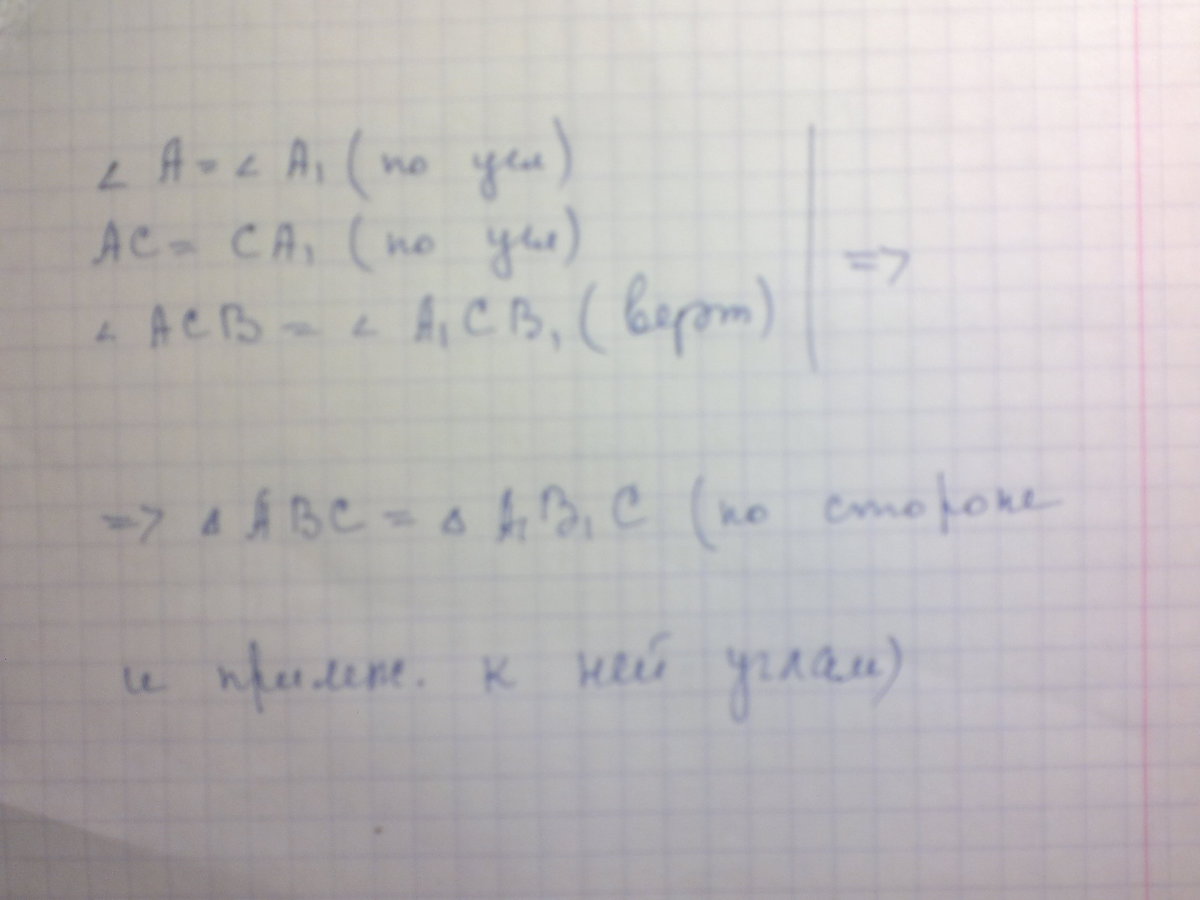 ∠ A = ∠ A₁ (по усл)
AC = CA₁ (по усл)
∠ ACB = ∠ A₁CB₁ (верт)
=>
=> Δ ABC = Δ A₁B₁C (по стороне
и прилеж. к ней углам)